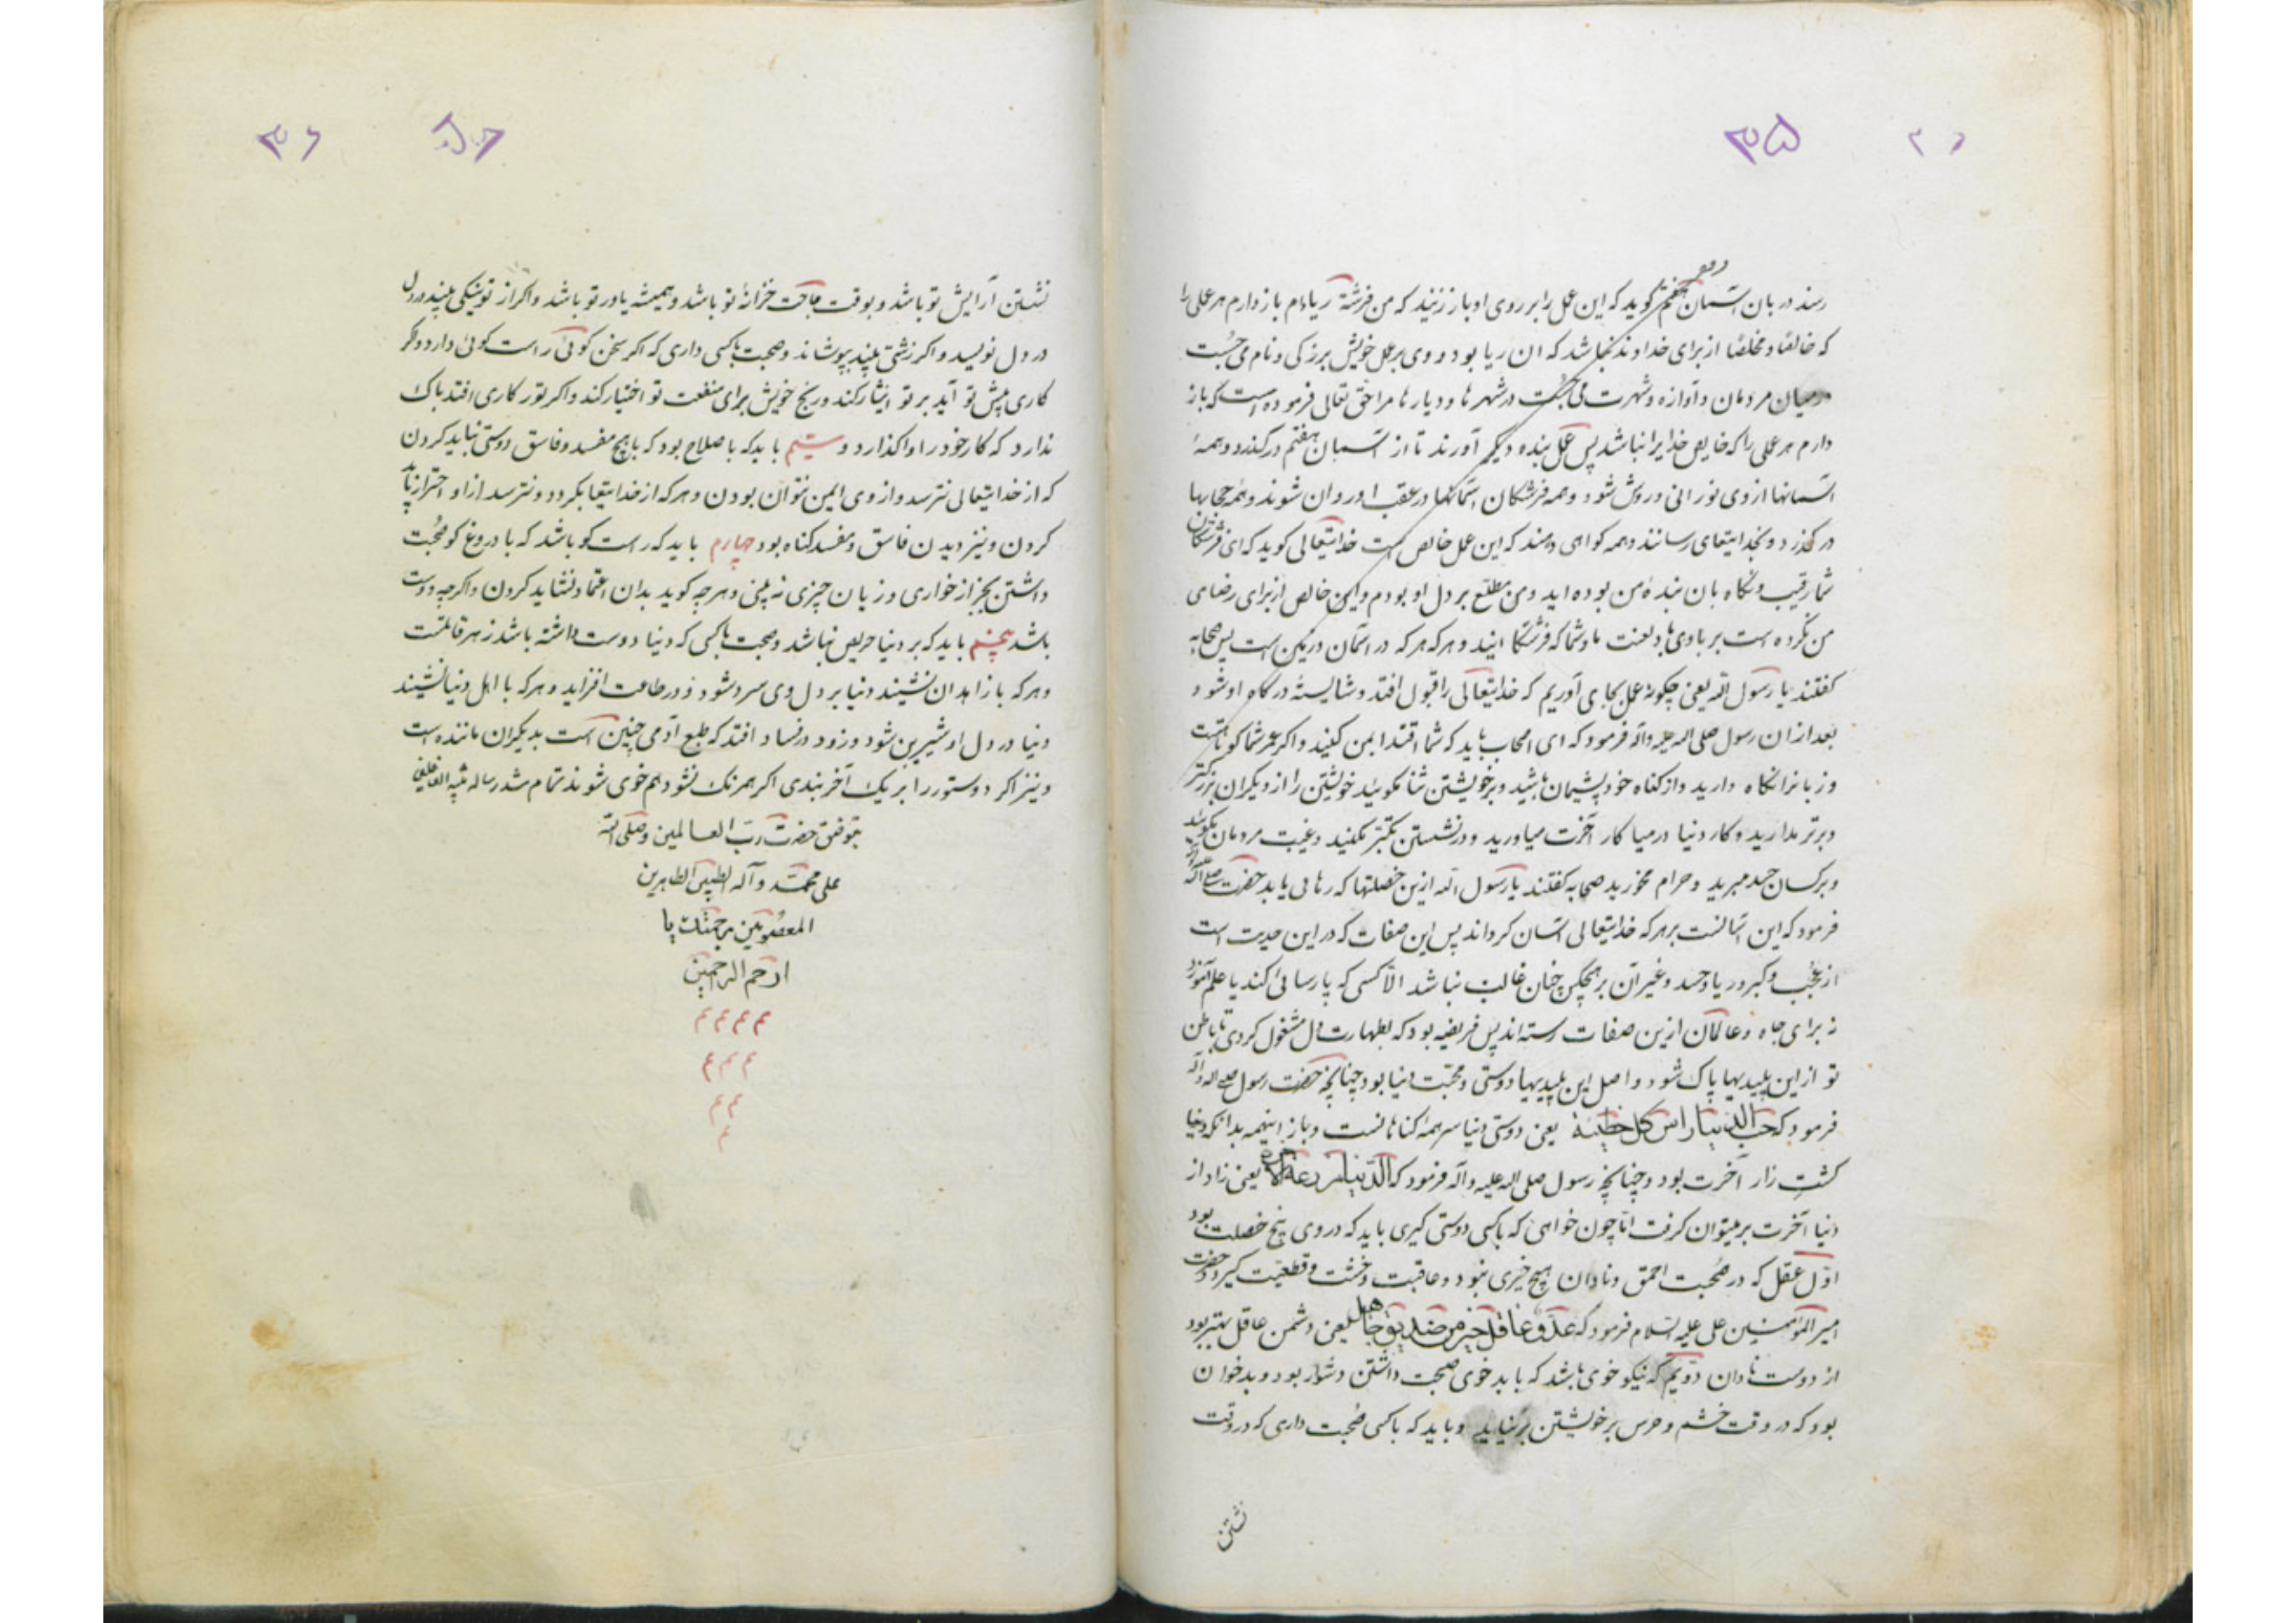 ۳۵
رسد دربان آسمان هفتم گوید که این عمل را بر روی او باز زنید که من فرشتهٔ ریاءام باز دارم هر عملی را
که خالصا و مخلصا از برای خداوند نباشد که ان ریا بود و وی بر عمل خویش بزرگی و نام می جست
درمیان مردمان و آوازه و شهرت می جست در شهرها و دیارها مرا حق تعالی فرموده است که باز
دارم هر عملی را که خالص خدایرا نباشد پس عمل بنده دیگر آورند تا از آسمان هفتم درگذرد و همهٔ
آسمانها از وی نورانی و روشن شود و همه فرشتگان آسمانها در عقب او روان شوند و همه حجابها
درگذرد و بخدایتعالی رسانند و همه گواهی دهند که این عمل خالص است خدایتعالی گوید که ای فرشتگان
شما رقیب و نگاه بان بنده من بوده اید و من مطلع بر دل او بودم و این خالص از برای رضای
من نکرده است بر باوی باد لعنت ما و شما که فرشتگانیند و هرکه هرکه در آسمان و زمین است پس صحابه
گفتند یا رسول الله یعنی چگونه عمل بجای آوریم که خدایتعالی را قبول افتد و شایستهٔ درگاه او شود
بعد از ان رسول صلی الله علیه و آله فرمود که ای اصحاب باید که شما اقتدا بمن کنید و اگر عمر شما کوتاهست
و زبانرا نگاه دارید و از گناه خود پشیمان باشید و بر خویشتن ثنا نگوئید خویشتن را از دیگران بزرگتر
و برتر مدارید و کار دنیا درمیا کار آخرت میاورید و در نشستن تکبر مکنید و غیبت مردمان نگوئید
و بر کسان حسد مبرید و حرام مخورید صحابه گفتند یا رسول الله ازین خصلتها که رهایی یابد حضرت صلی الله علیه و آله
فرمود که این آسانست بر هر که خدایتعالی آسان گرداند پس این صفات که در این حدیث است
از عجب و کبر و ریا و حسد و غیر آن بر هیچکس چنان غالب نباشد الا کسی که پارسائی کند یا علم آموزد
نه برای جاه و عالمان ازین صفات رسته اند پس فریضه بود که بطهارت دل مشغول گردی تا باطن
تو از این پلیدیها پاک شود و اصل این پلیدیها دوستی و محبت دنیا بود چنانچه حضرت رسول صلی الله و آله
فرمود که حب الدنیا راس کل خطیئة یعنی دوستی دنیا سر همه گناهانست و باز اینهمه بدانکه دنیا
کشت زار آخرت بود و چنانچه رسول صلی الله علیه و آله فرمود که الدنیا مزرعة الاخرة یعنی زاد از
دنیا آخرت بر میتوان گرفت اما چون خواهی که باکسی دوستی گیری باید که در وی پنج خصلت بود
اول عقل که در صحبت احمق و نادان هیچ خیری نبود و عاقبت وحشت و قطعیت گیرد و حضرت
امیرالمومنین علی علیه السلام فرمود که عدو عاقل خیر من صدیق جاهل یعنی دشمن عاقل بهتر بود
از دوست نادان دویم که نیکو خوی باشد که با بد خوی صحبت داشتن دشوار بود و بدخو ان
بود که در وقت خشم و حرص بر خویشتن برنیاید و باید که باکسی صحبت داری که در وقت
نشستن
۳۶
نشستن آرایش تو باشد و بوقت حاجت خزانهٔ تو باشد و همیشه یاور تو باشد و اگر از تو نیکی بیند در دل
در دل نویسد و اگر زشتی بیند بپوشاند و صحبت باکسی داری که اگر سخن گوئی راست گوئی دارد و اگر
کاری پیش تو آید بر تو ایثار کند و رنج خویش برای منفعت تو اختیار کند و اگر تو را کاری افتد باک
ندارد که کار خود را واگذارد و سیّم باید که با صلاح بود که باهیچ مفسد و فاسق دوستی نباید کردن
که از خدایتعالی نترسد و از وی ایمن نتوان بودن و هرکه از خدایتعا بگردد و نترسد از او احتراز باید
کردن و نیز دیدن فاسق و مفسد گناه بود چهارم باید که راست گو باشد که با دروغ گو صحبت
داشتن بجز از خواری و زیان چیزی نه بینی و هر چه گوید بدان اعتماد نشاید کردن و اگر چه دوست
باشد پنجم باید که بر دنیا حریص نباشد و صحبت باکسی که دنیا دوست داشته باشد زهر قاتلست
و هرکه با زاهدان نشیند دنیا بر دل وی سرد شود و در طاعت افزاید و هرکه با اهل دنیا نشیند
دنیا در دل او شیرین شود و زود در فساد افتد که طبع آدمی چنین است بدیگران ماننده است
و نیز اگر دو ستور را بر یک آخر بندی اگر همرنگ نشود هم خوی شوند تمام شد رساله تنبیه الغافلین
بتوفیق حضرت رب العالمین و صلی الله
علی محمد و آله الطیبین الطاهرین
المعصومین برحمتک یا
ارحم الراحمین
م م م م
م م م
م م
م